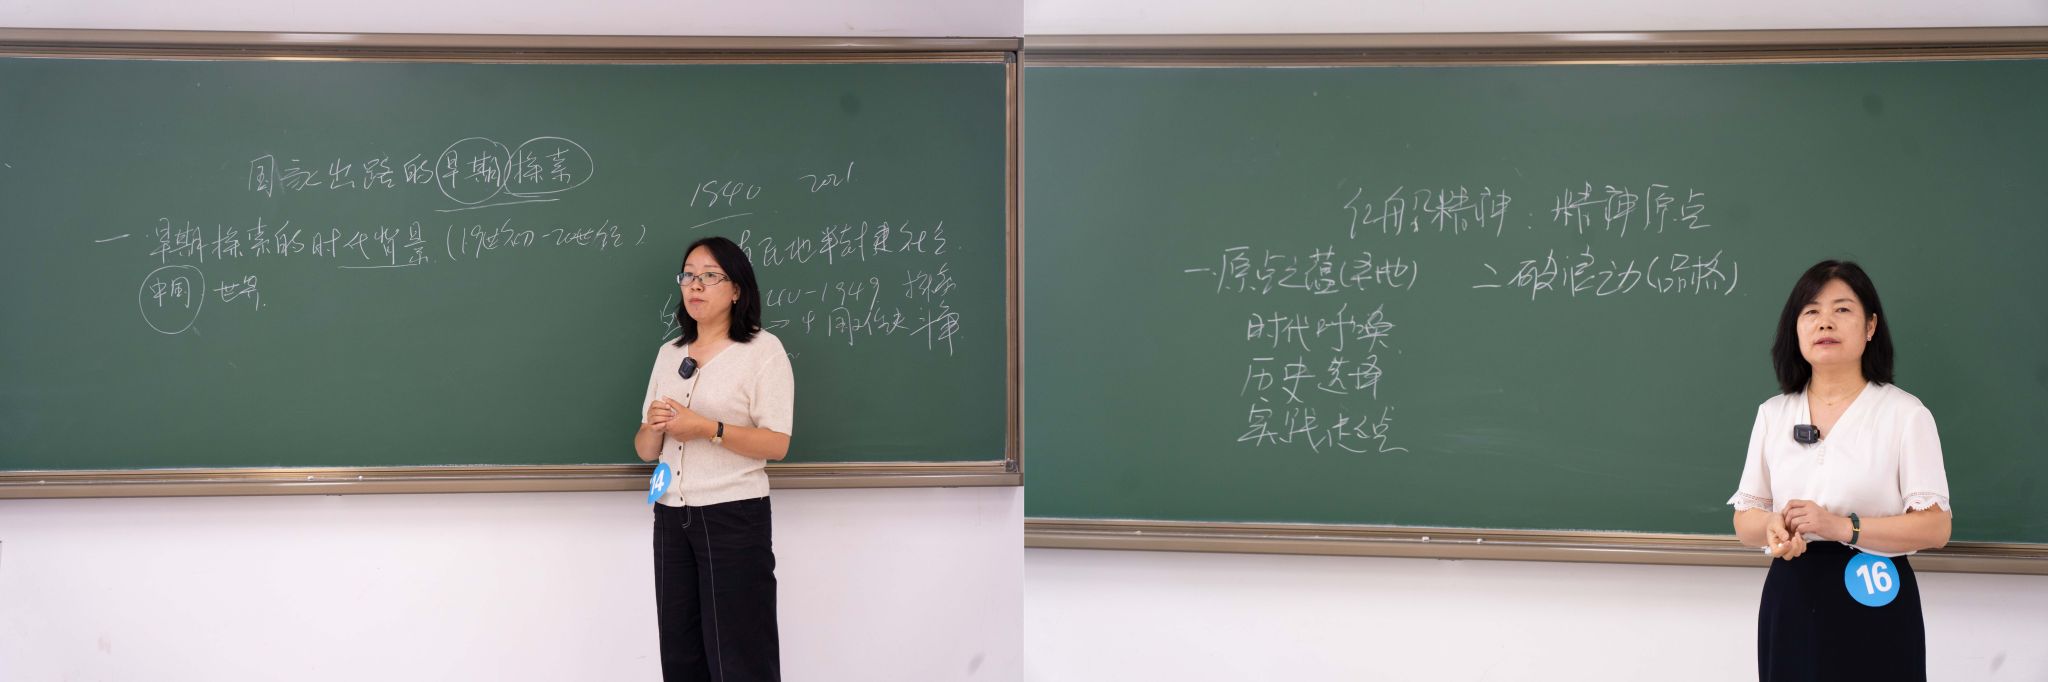 国家出路的早期探索
一. 早期探索的时代背景. (19世纪初-20世纪
中国 世界.
1840 2021
民地半封建社会.
40-1949 探索
→中国 斗争.
14
红船精神：精神原点
一.原点之蕴(基地) 二.破浪之动(品格)
时代呼唤
历史选择
实践起点
16